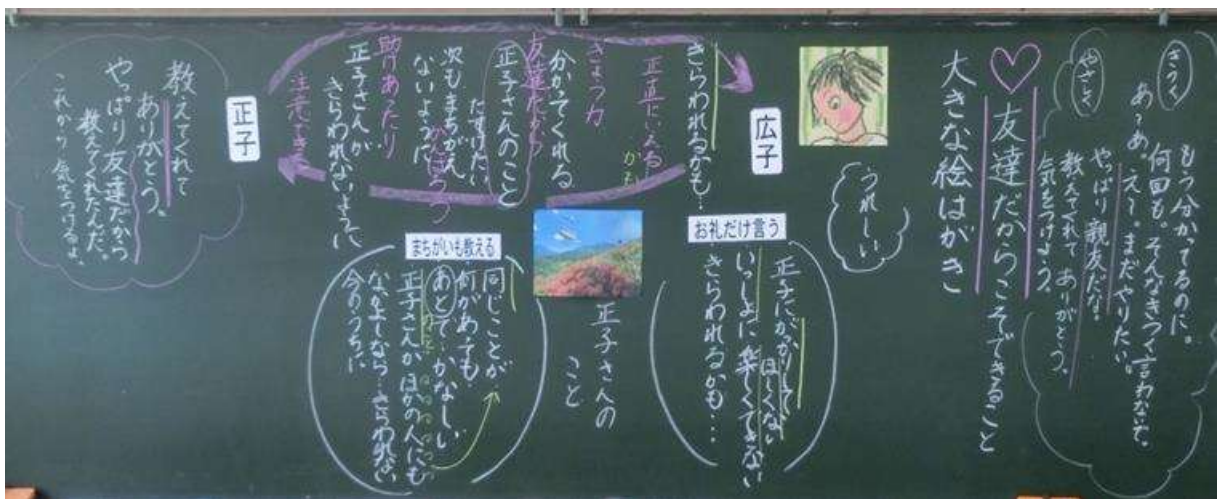 きつく
もう分かってるのに。
何回も。そんなきつく言わないで。
あ〜あ。え〜。まだやりたい。
やさしく
やっぱり親友だな。
教えてくれてありがとう。
気をつけよう。
友達だからこそできること
大きな絵はがき
うれしい
広子
お礼だけ言う
正子にがっかりして
ほしくない
いっしょに楽しくできない
きらわれるかも・・
きらわれるかも・・
正直にいえる
かも
きょう力
分かってくれる
友達だから
正子さんのこと
たすけたい
次もまちがえ
ないように
助けあったり
正子さんが
きらわれないように
注意できる
正子さんの
こと
まちがいも教える
同じことが
何があっても
あとで・かなしい
正子さんがほかの人にも
きらわれない
今のうちに
正子
教えてくれて
ありがとう。
やっぱり友達だから
教えてくれたんだ。
これから気をつけるよ。